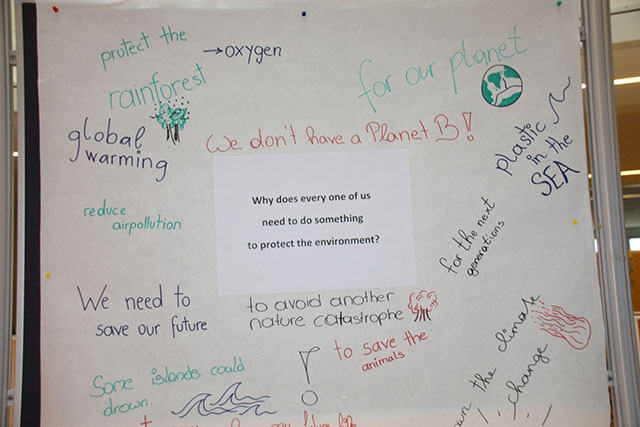 protect the
rainforest
→oxygen
for our planet
global
warming
We don't have a Planet B!
plastic
in the
SEA
Why does every one of us
need to do something
to protect the environment?
reduce
airpollution
for the next
generations
We need to
save our future
to avoid another
nature catastrophe
to save the
animals
Some islands could
drown.
the climate
change